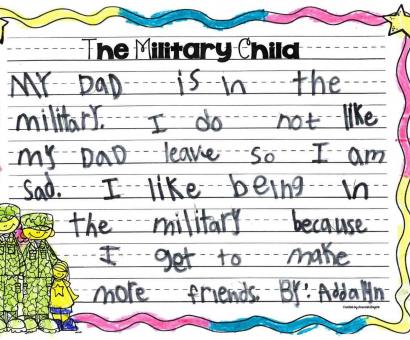 The Military Child
MY DAD is in the
military. I do not like
my DAD leave so I am
sad. I like being in
the military because
I get to make
more friends. BY: Addalyn